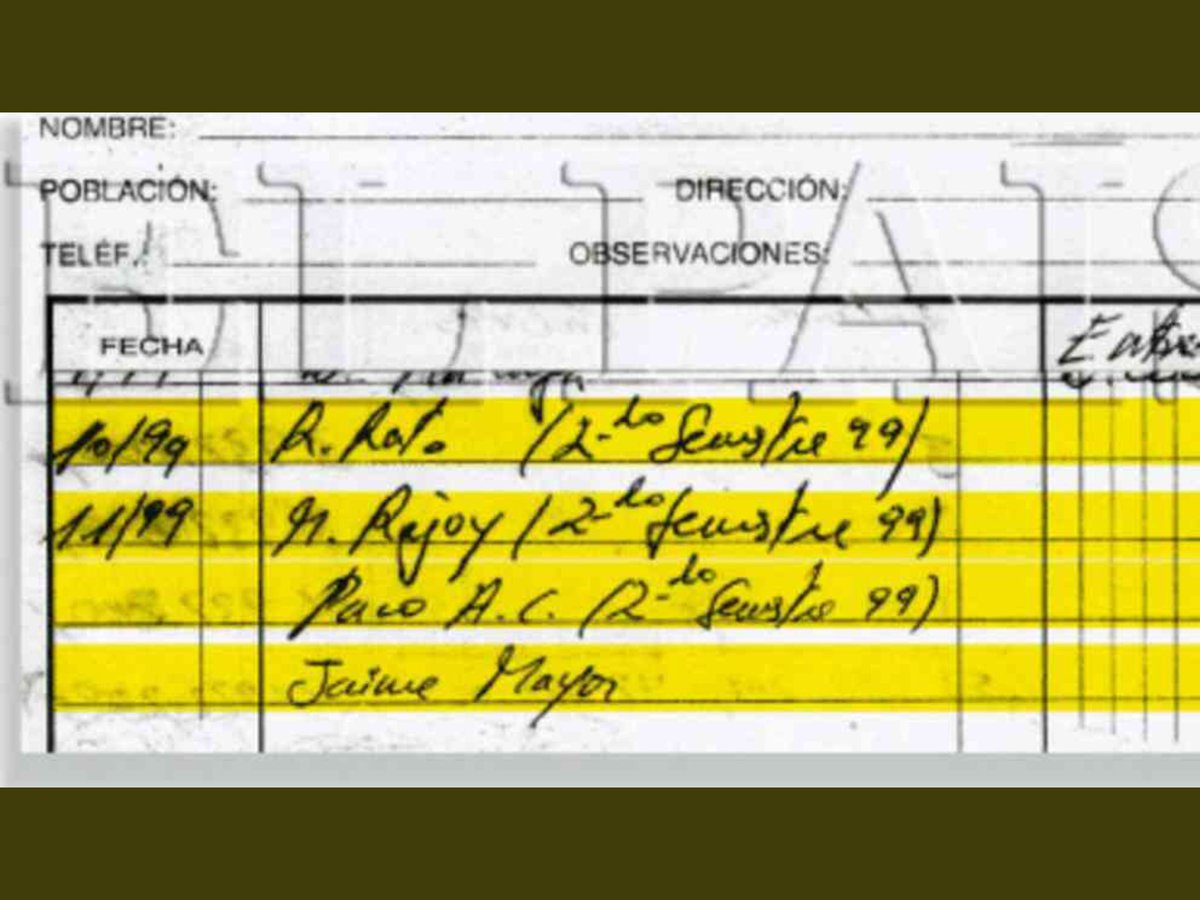 NOMBRE:
POBLACIÓN: DIRECCIÓN:
TELÉF.: OBSERVACIONES:
EL PAIS
FECHA
10/99 R. Rato (2-do Semestre 99)
11/99 M. Rajoy (2-do Semestre 99)
Paco A.C. (2-do Semestre 99)
Jaime Mayor